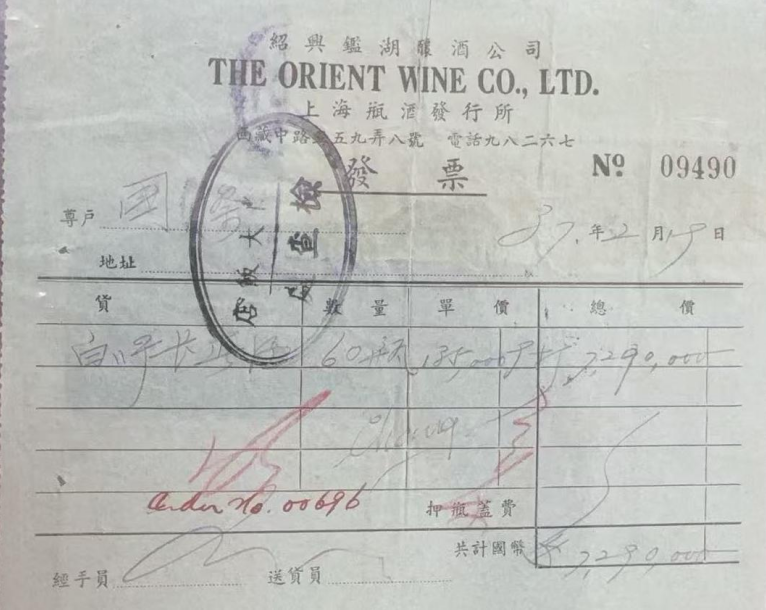 紹興鑑湖釀酒公司
THE ORIENT WINE CO., LTD.
上海瓶酒發行所
西藏中路 五九弄八號 電話九八二六七
發票
Nº 09490
專戶 國
37年2月19日
地址
貨 數量 單價 總價
60瓶 135,000 7,290,000
Order No. 00696
押瓶蓋費
共計國幣 7,290,000
經手員 送貨員
檢查
大飯店